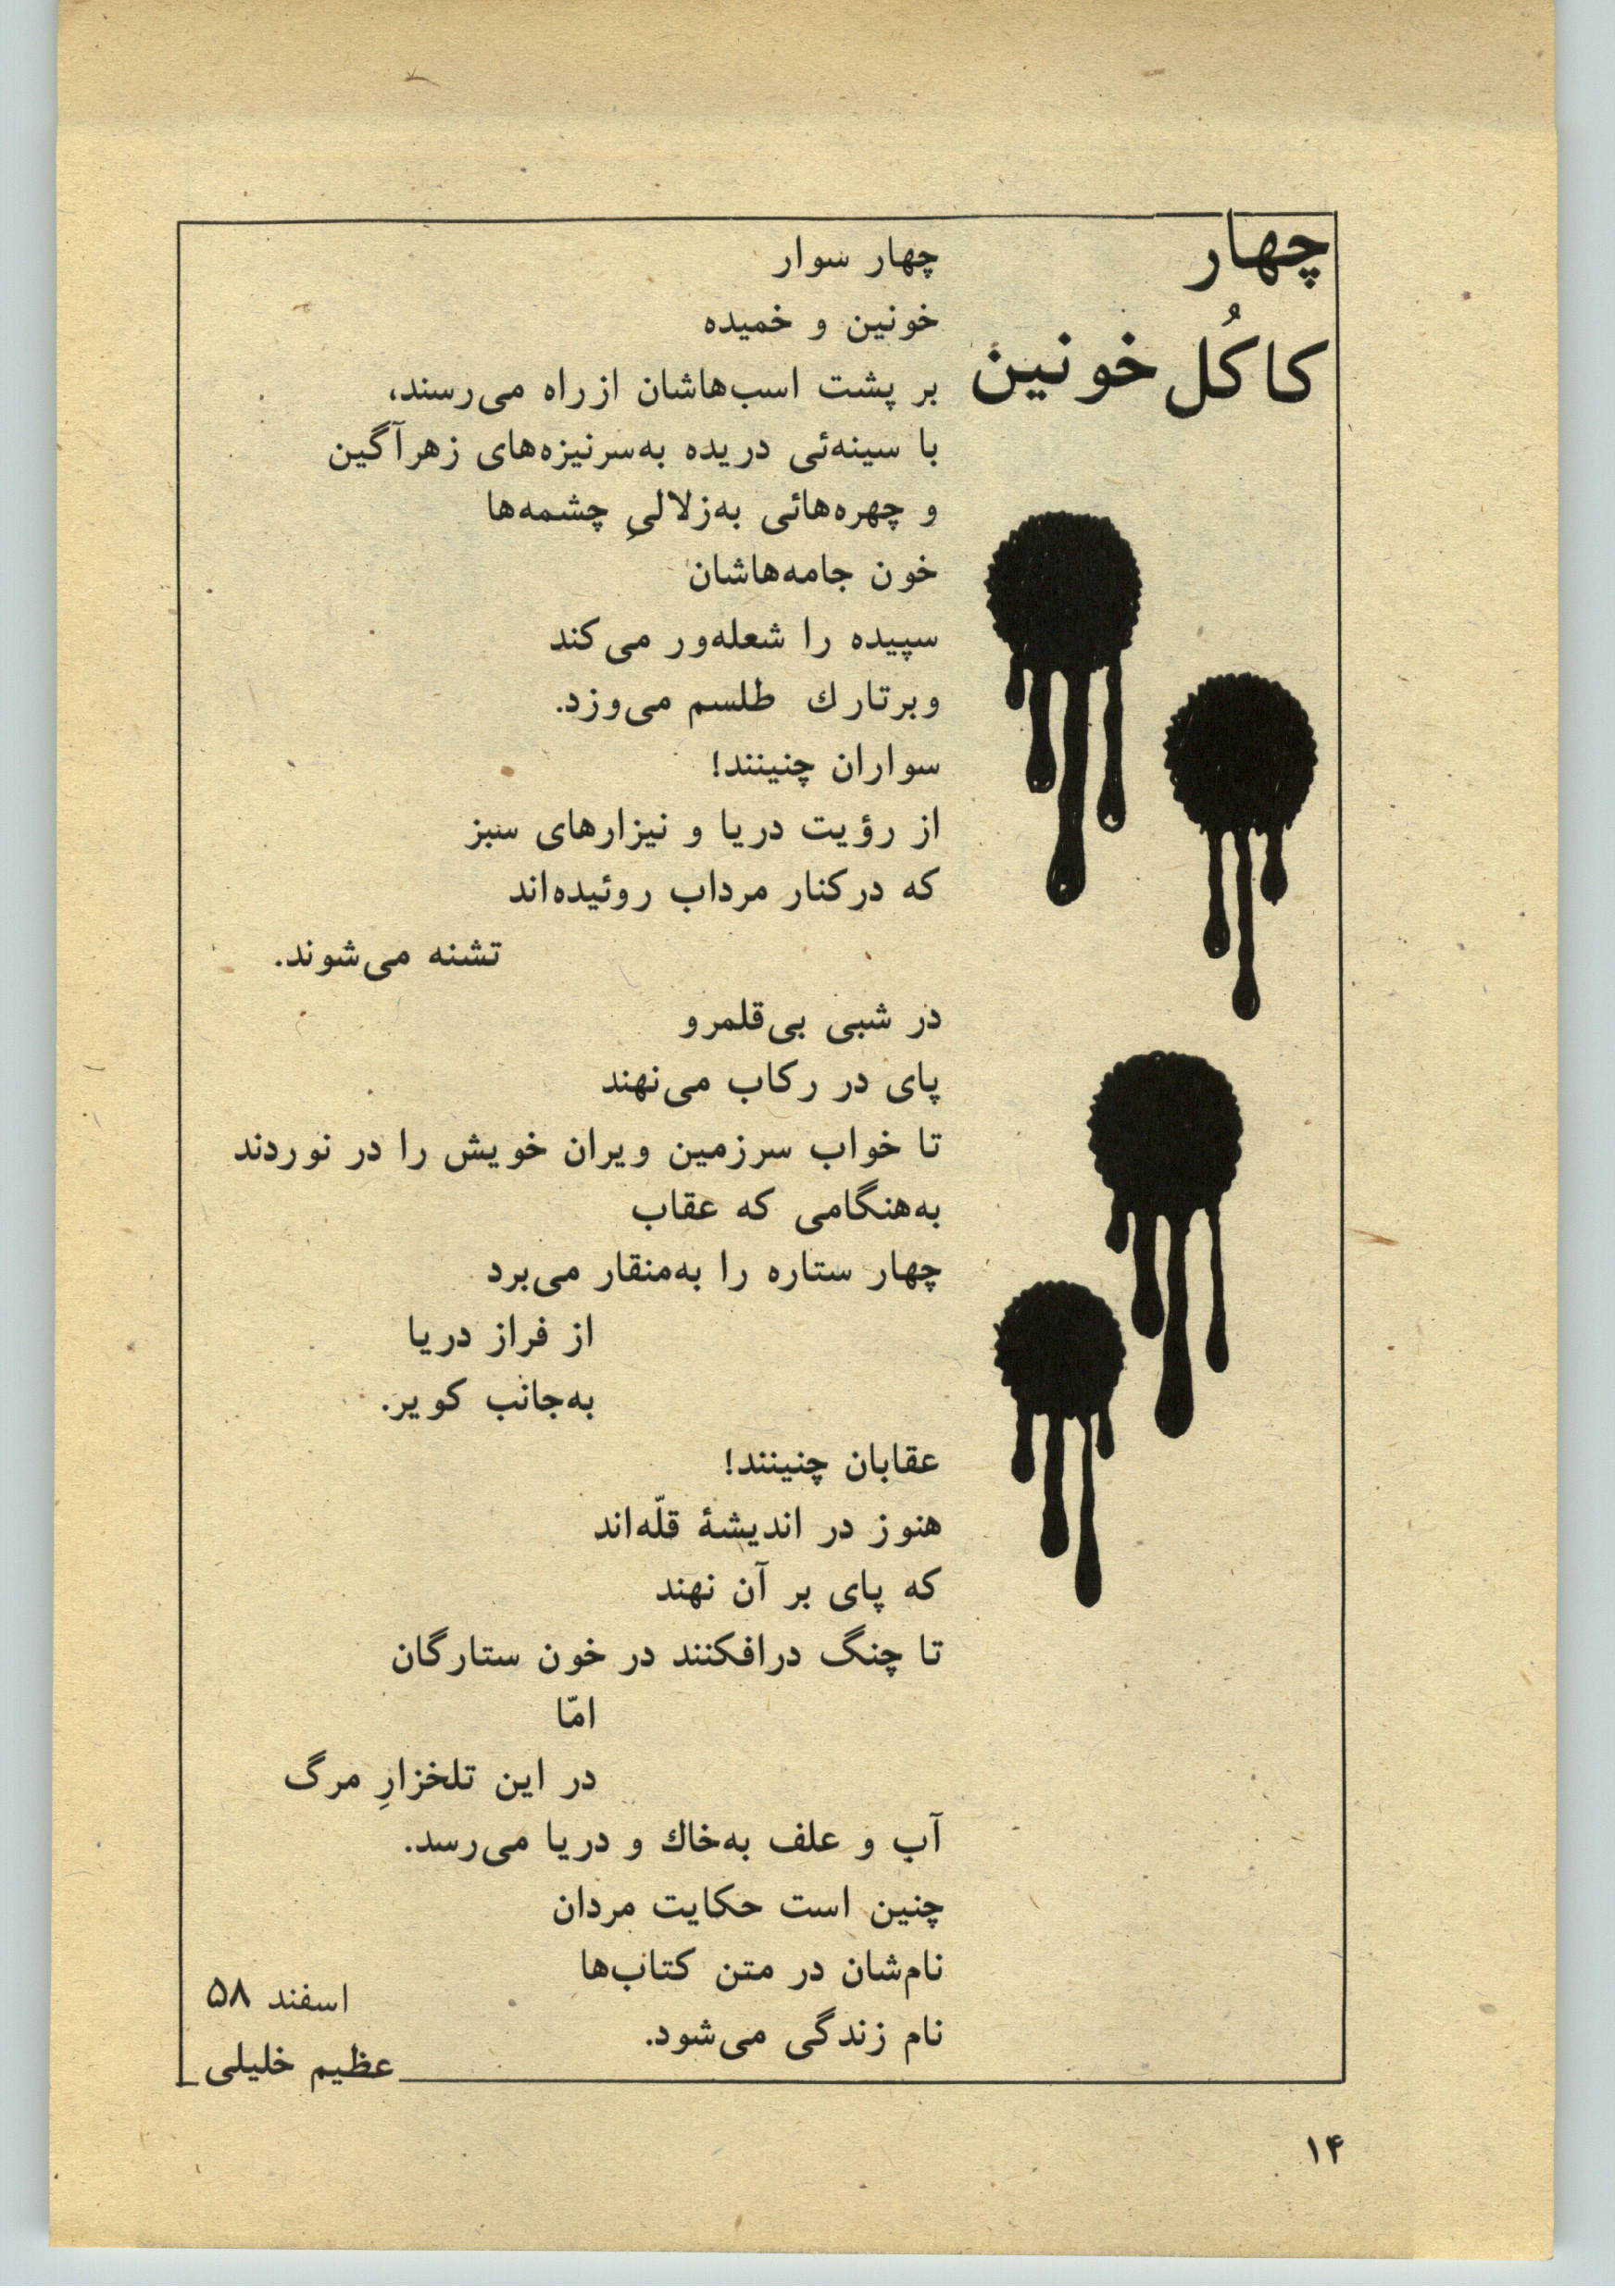 چهار
کاکُل خونین
چهار سوار
خونین و خمیده
بر پشت اسب‌هاشان از راه می‌رسند،
با سینه‌ئی دریده به‌سرنیزه‌های زهرآگین
و چهره‌هائی به‌زلالیِ چشمه‌ها
خون جامه‌هاشان
سپیده را شعله‌ور می‌کند
و برتارك طلسم می‌وزد.
سواران چنینند!
از رؤیت دریا و نیزارهای سبز
که در کنار مرداب روئیده‌اند
تشنه می‌شوند.
در شبی بی‌قلمرو
پای در رکاب می‌نهند
تا خواب سرزمین ویران خویش را در نوردند
به‌هنگامی که عقاب
چهار ستاره را به‌منقار می‌برد
از فراز دریا
به‌جانب کویر.
عقابان چنینند!
هنوز در اندیشهٔ قلّه‌اند
که پای بر آن نهند
تا چنگ درافکنند در خون ستارگان
امّا
در این تلخزارِ مرگ
آب و علف به‌خاك و دریا می‌رسد.
چنین است حکایت مردان
نام‌شان در متن کتاب‌ها
نام زندگی می‌شود.
اسفند ۵۸
عظیم خلیلی
۱۴